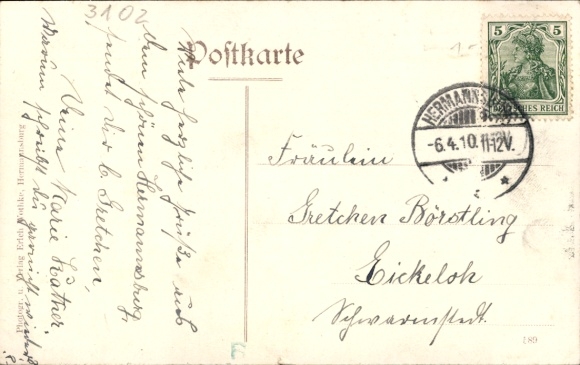 3102
Postkarte
5 5
DEUTSCHES REICH
HERMANNSBURG
-6.4.10.11-12V.
Viele herzliche Grüße aus
dem schönen Hermannsburg
sendet dir l. Gretchen,
Deine Marie Kattner
Warum schreibst du garnicht wieder?
Fräulein
Gretchen Börstling
Eickeloh
Schwarmstedt.
189